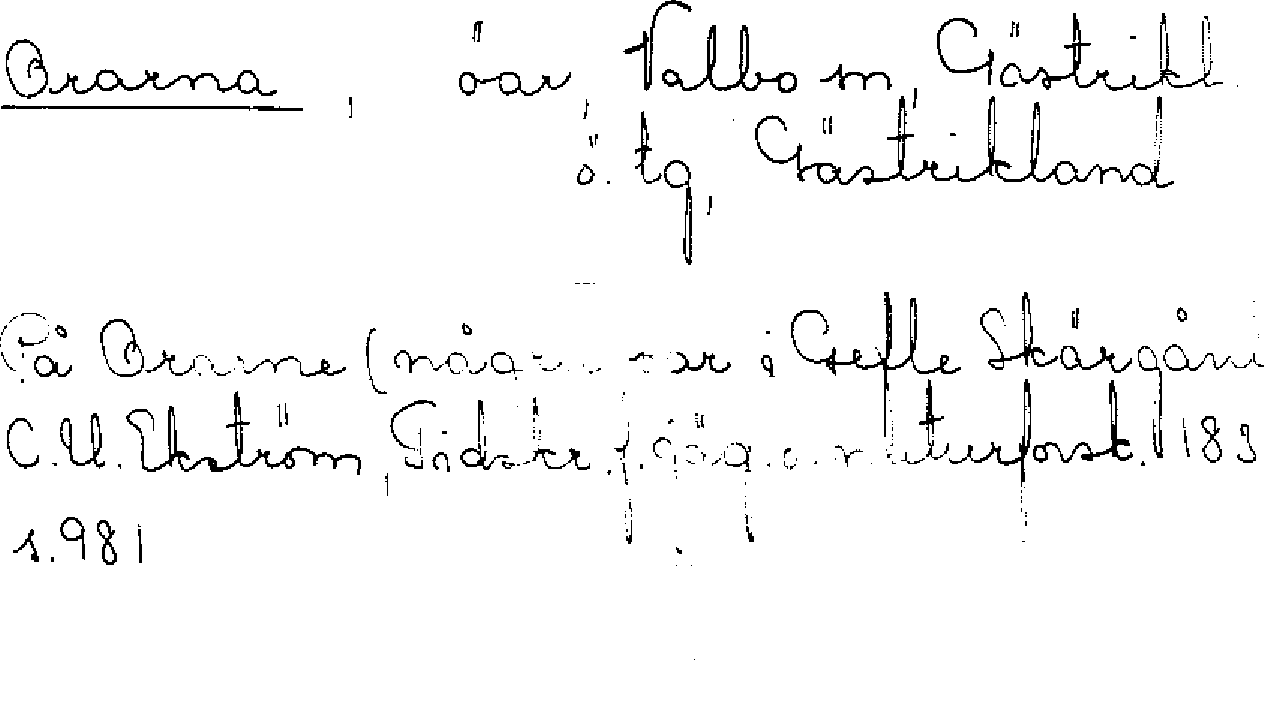 Orarna, öar, Valbo sn, Gästrikl.
ö. tg, Gästrikland
På Orarne (några öar i Gefle Skärgård
C.U. Ekström, Tidskr. f. jäg. o. naturforsk. 183
s. 981